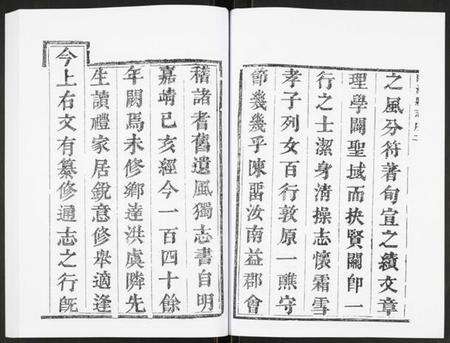 之風分符著旬宣之績文章
理學闢聖域而抉賢關卽一
行之士潔身清操志懷霜雪
孝子列女百行敦原一醮守
節幾幾乎陳畱汝南益郡會
稽諸耆舊遺風獨志書自明
嘉靖已亥經今一百四十餘
年闕焉未修鄉達洪虞隣先
生讀禮家居銳意修舉適逢
今上右文有纂修通志之行旣